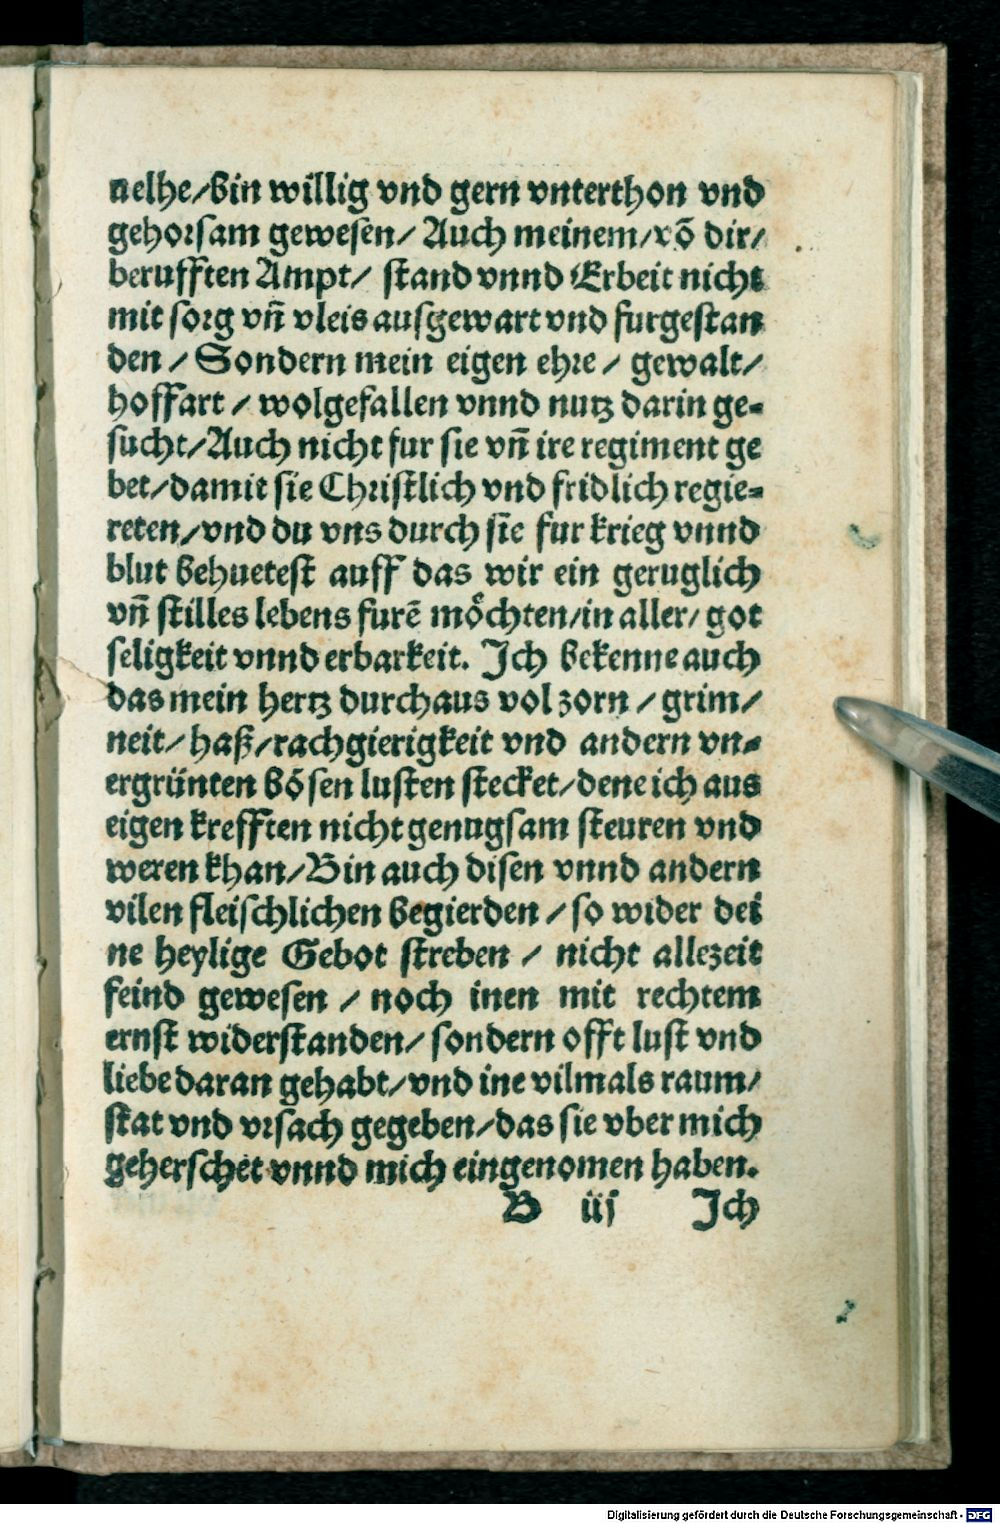 nelhe/bin willig vnd gern vnterthon vnd
gehorsam gewesen/ Auch meinem/vō dir/
berufften Ampt/ stand vnnd Erbeit nicht
mit sorg vn̄ vleis ausgewart vnd furgestan
den / Sondern mein eigen ehre / gewalt/
hoffart / wolgefallen vnnd nutz darin ge-
sucht/Auch nicht fur sie vn̄ ire regiment ge
bet/damit sie Christlich vnd fridlich regie-
reten/vnd du vns durch sie fur krieg vnnd
blut behuetest auff das wir ein geruglich
vn̄ stilles lebens furē möchten/in aller/ got
seligkeit vnnd erbarkeit. Ich bekenne auch
das mein hertz durchaus vol zorn / grim/
neit/ haß/rachgierigkeit vnd andern vn-
ergrünten bösen lusten stecket/dene ich aus
eigen krefften nicht genugsam steuren vnd
weren khan/Bin auch disen vnnd andern
vilen fleischlichen begierden / so wider dei
ne heylige Gebot streben / nicht allezeit
feind gewesen / noch inen mit rechtem
ernst widerstanden/ sondern offt lust vnd
liebe daran gehabt/vnd ine vilmals raum/
stat vnd vrsach gegeben/das sie vber mich
geherschet vnnd mich eingenomen haben.
B iij Ich
Digitalisierung gefördert durch die Deutsche Forschungsgemeinschaft - DFG